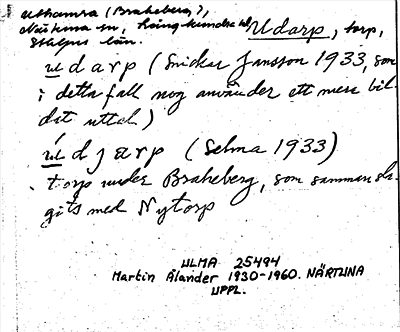 Uthamra (Braheberg),
Närtuna sn, Långhundra hd, Udarp, torp,
Sthlms län.
udarp (Snickar Jansson 1933, som
i detta fall nog använder ett mera bil-
dat uttal)
udjarp (Selma 1933)
torp under Braheberg, som sammansla-
gits med Nytorp
ULMA 25494
Martin Ålander 1930-1960. NÄRTUNA
UPPL.